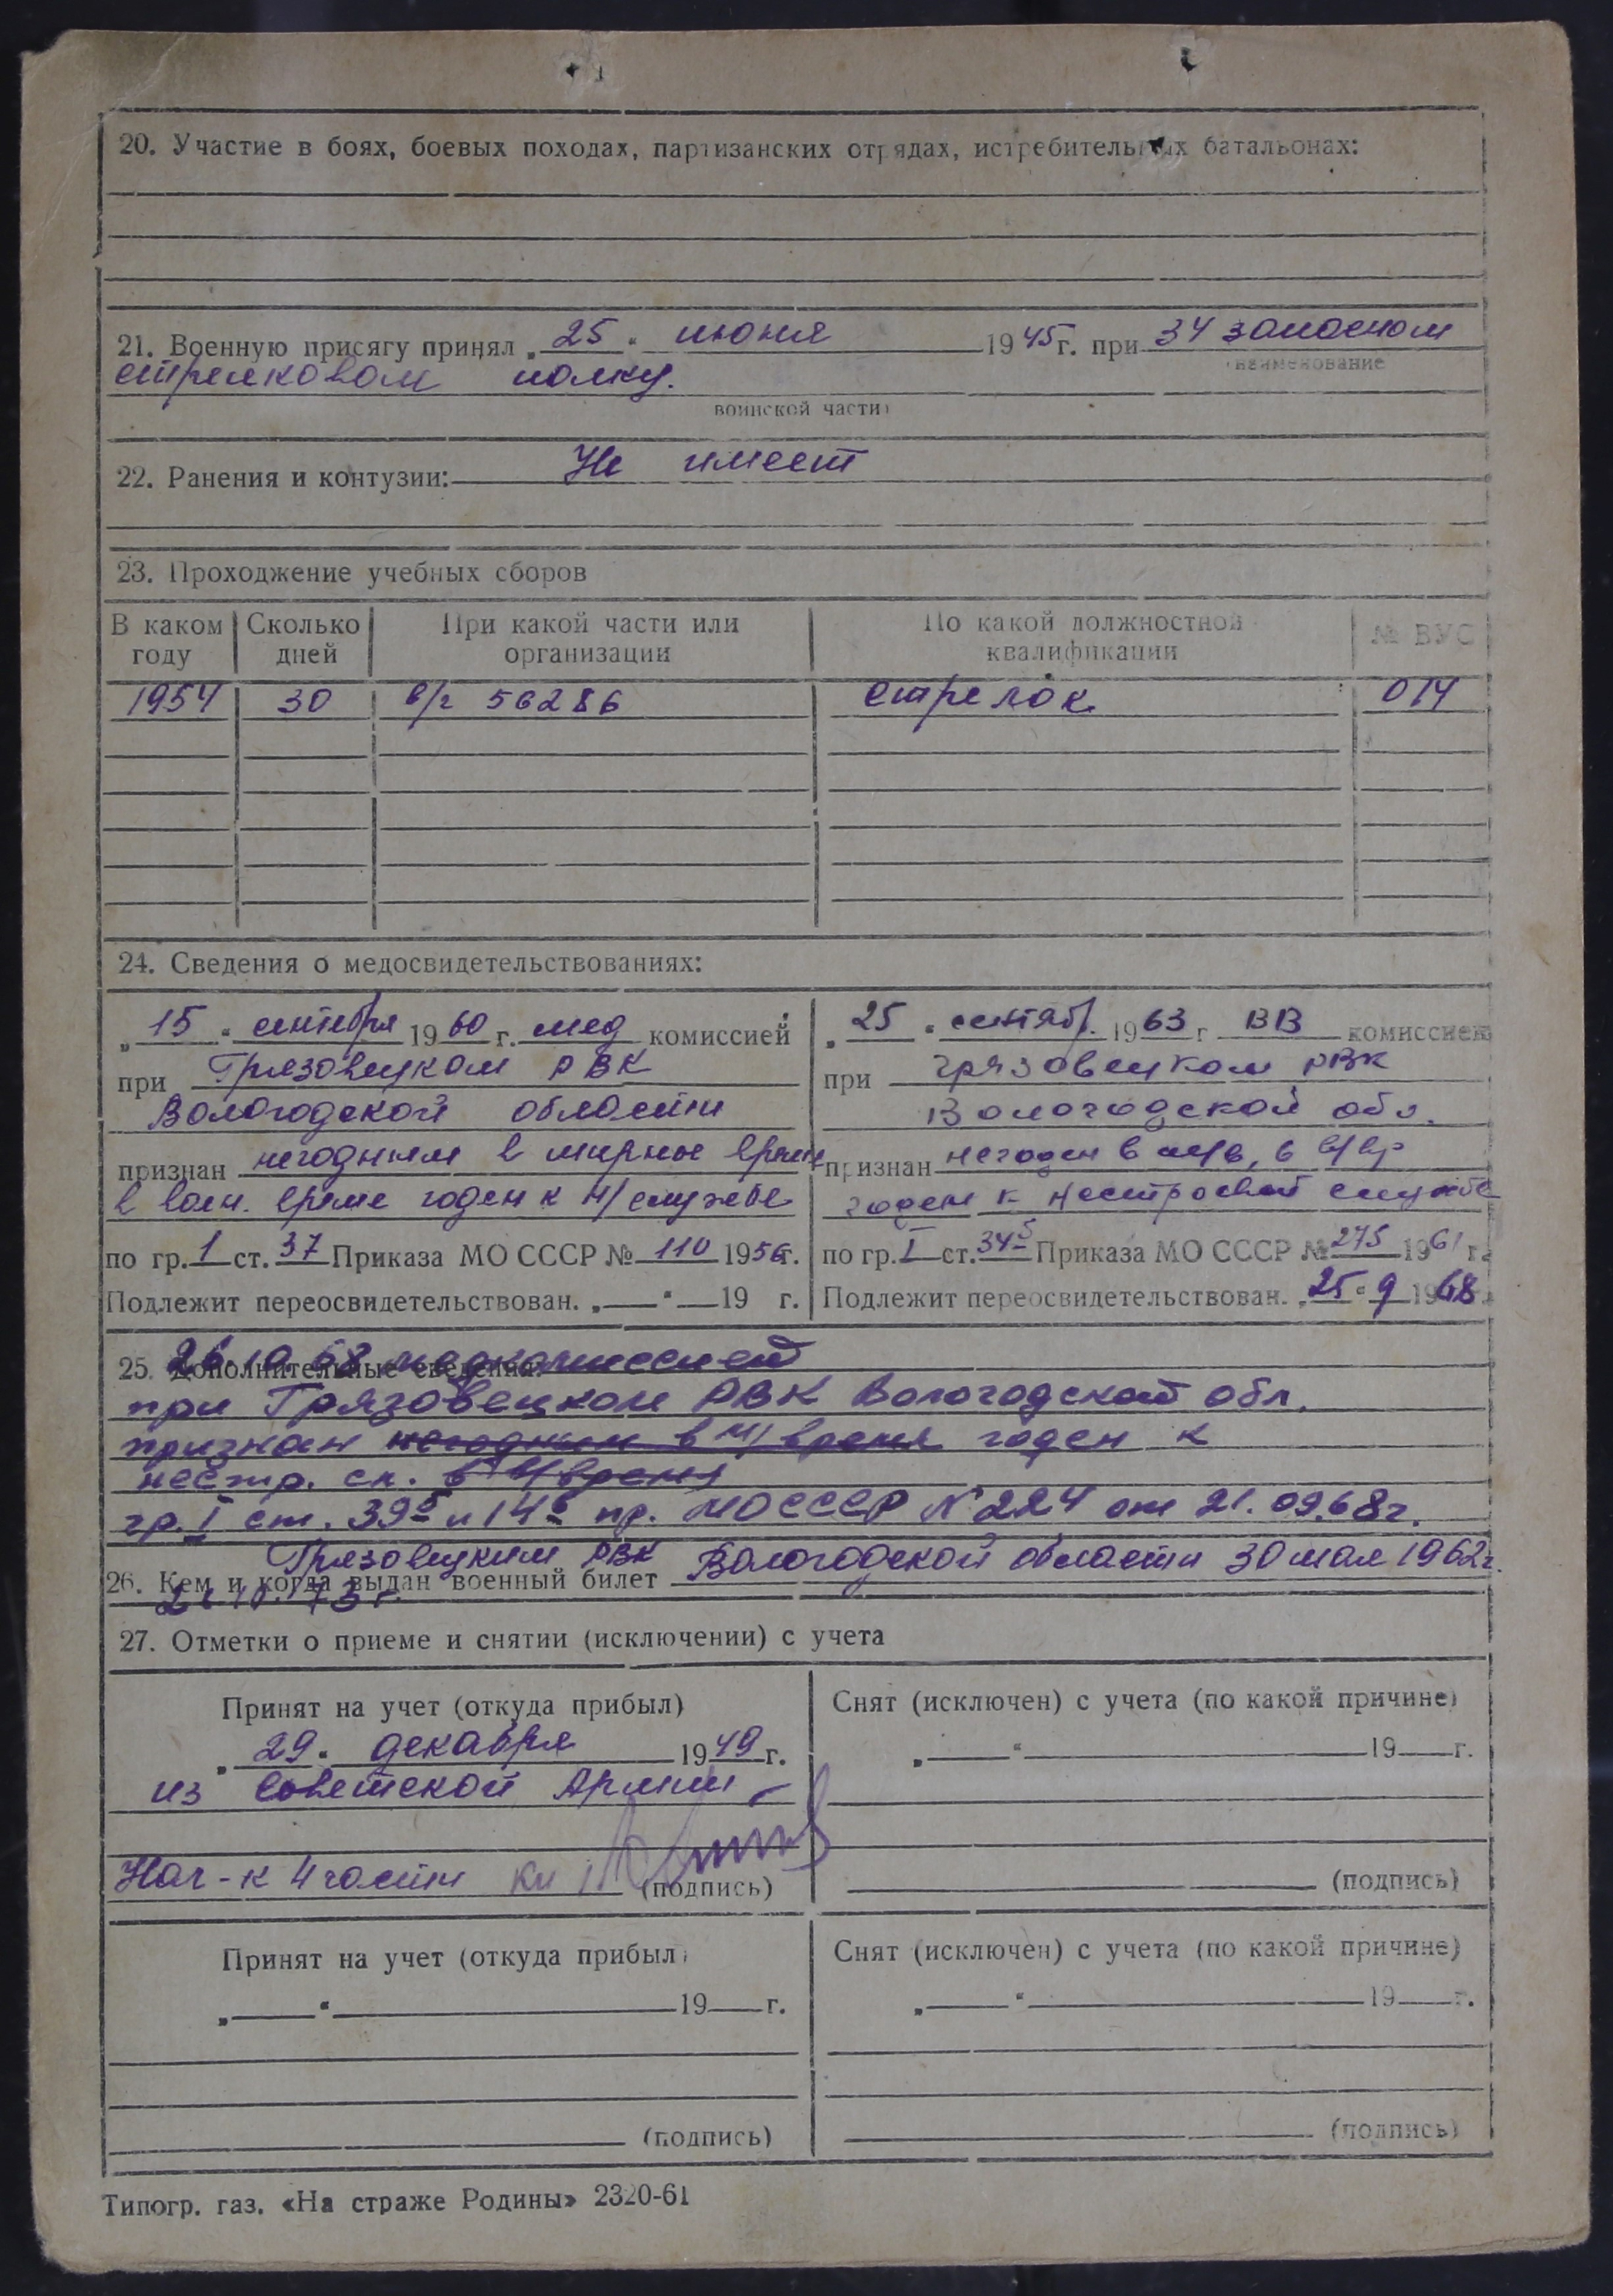 20. Участие в боях, боевых походах, партизанских отрядах, истребительных батальонах:
21. Военную присягу принял „25“ июня 1945 г. при 34 запасном
наименование
стрелковом полку.
воинской части)
22. Ранения и контузии: Не имеет
23. Прохождение учебных сборов
В каком году Сколько дней При какой части или организации По какой должностной квалификации № ВУС
1954 30 в/г 56286 стрелок 014
24. Сведения о медосвидетельствованиях:
„15“ сентября 1960 г. мед комиссией
при Грязовецком РВК
Вологодской области
признан негодным в мирное время
в воен. время годен к н/службе
по гр. 1 ст. 37 Приказа МО СССР № 110 1956 г.
Подлежит переосвидетельствован. „ “ 19 г.
„25“ сентябр. 1963 г. ВВ комиссией
при Грязовецком РВК
Вологодской обл.
признан негоден в м/в, в в/вр
годен к нестроевой службе
по гр. I ст. 34б Приказа МО СССР № 275 1961 г.
Подлежит переосвидетельствован. „25“ 9 1968
25. Дополнительные сведения:
26.10.68 медкомиссией
при Грязовецком РВК Вологодской обл.
признан негодным в м/время годен к
нестр. сл. в в/время
гр. I ст. 39б и 14б пр. МО СССР № 224 от 21.09.68г.
26. Кем и когда выдан военный билет Грязовецким РВК Вологодской области 30 мая 1962г.
73 г.
27. Отметки о приеме и снятии (исключении) с учета
Принят на учет (откуда прибыл)
„29“ декабря 1949 г.
из Советской Армии
Нач-к 4 части
(подпись)
Снят (исключен) с учета (по какой причине)
„ “ 19 г.
(подпись)
Принят на учет (откуда прибыл)
„ “ 19 г.
(подпись)
Снят (исключен) с учета (по какой причине)
„ “ 19 г.
(подпись)
Типогр. газ. «На страже Родины» 2320-61